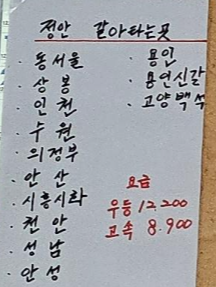 정안 갈아타는곳
· 동서울
· 상봉
· 인천
· 수원
· 의정부
· 안산
· 시흥시화
· 천안
· 성남
· 안성
· 용인
· 용인신갈
· 고양백석
요금
우등 12,200
고속 8,900